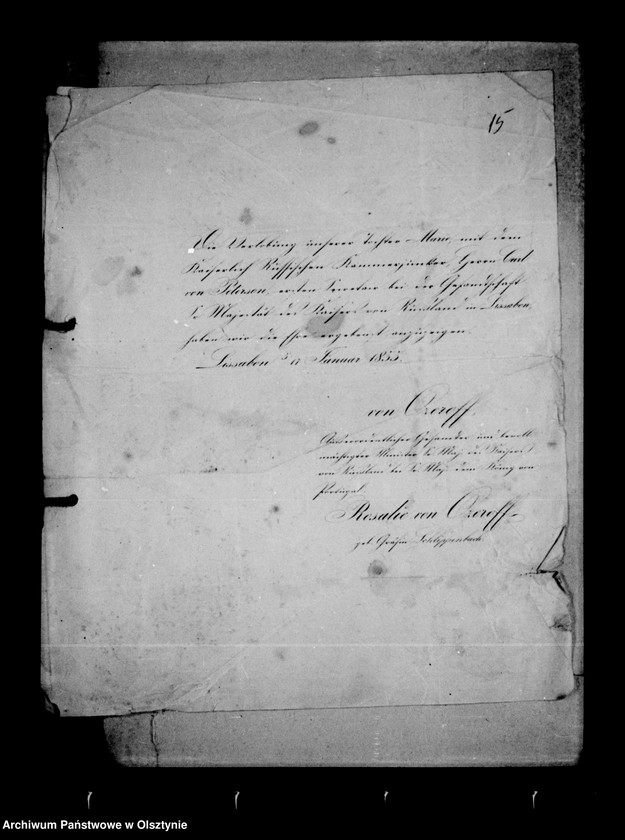 15
Die Verlobung unserer Tochter Marie, mit dem
Kaiserlich Russischen Kammerjunker, Herrn Carl
von Peterson, ersten Secretair bei der Gesandschaft
Sr Majestät des Kaisers von Russland in Lissabon,
haben wir die Ehre ergebenst anzuzeigen.
Lissabon 17 Januar 1855.
von Ozeroff,
Ausserordentlicher Gesandter und bevoll-
mächtigter Minister Sr Maj: des Kaisers
von Russland bei Sr Maj: dem König von
Portugal.
Rosalie von Ozeroff
geb. Gräfin Schlippenbach.
Archiwum Państwowe w Olsztynie